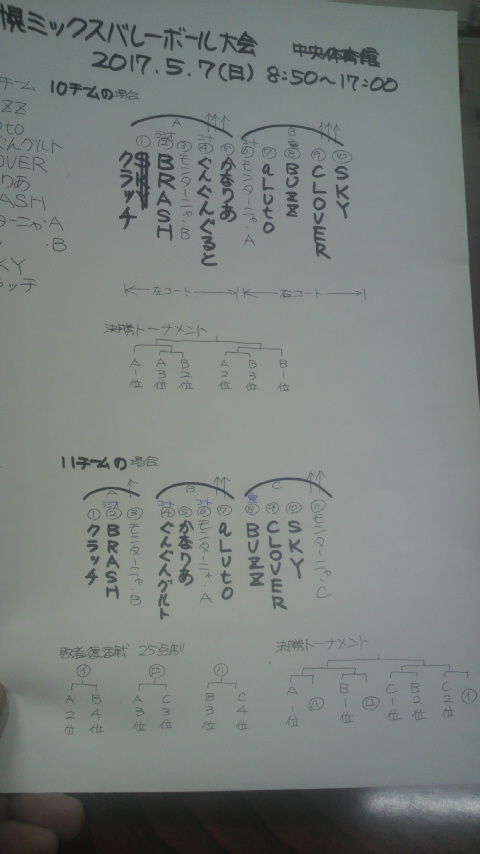 幌ミックスバレーボール大会 中央体育館
2017.5.7(日) 8:50~17:00
チーム
ZZ
uto
ぐんグルト
OVER
りあ
ASH
ターニャ・A
・B
KY
ラッチ
10チームの場合
A
B
① クラッチ
② BRASH
③ モンターニャ・B
④ ぐんぐんぐると
⑤ かなりあ
⑥ モンターニャ・A
⑦ aLUtO
⑧ BUZZ
⑨ CLOVER
⑩ SKY
左コート
右コート
決勝トーナメント
A1位
A3位
B2位
A2位
B3位
B1位
11チームの場合
A
B
C
① クラッチ
② BRASH
③ モンターニャ・B
④ ぐんぐんグルト
⑤ かなりあ
⑥ モンターニャ・A
⑦ aLUtO
⑧ BUZZ
⑨ CLOVER
⑩ SKY
⑪ モンターニャ・C
敗者復活戦 25点制
イ
ロ
ハ
A2位
B4位
A3位
C3位
B3位
C4位
決勝トーナメント
A1位
ハ
B1位
ロ
C1位
B2位
C2位
イ